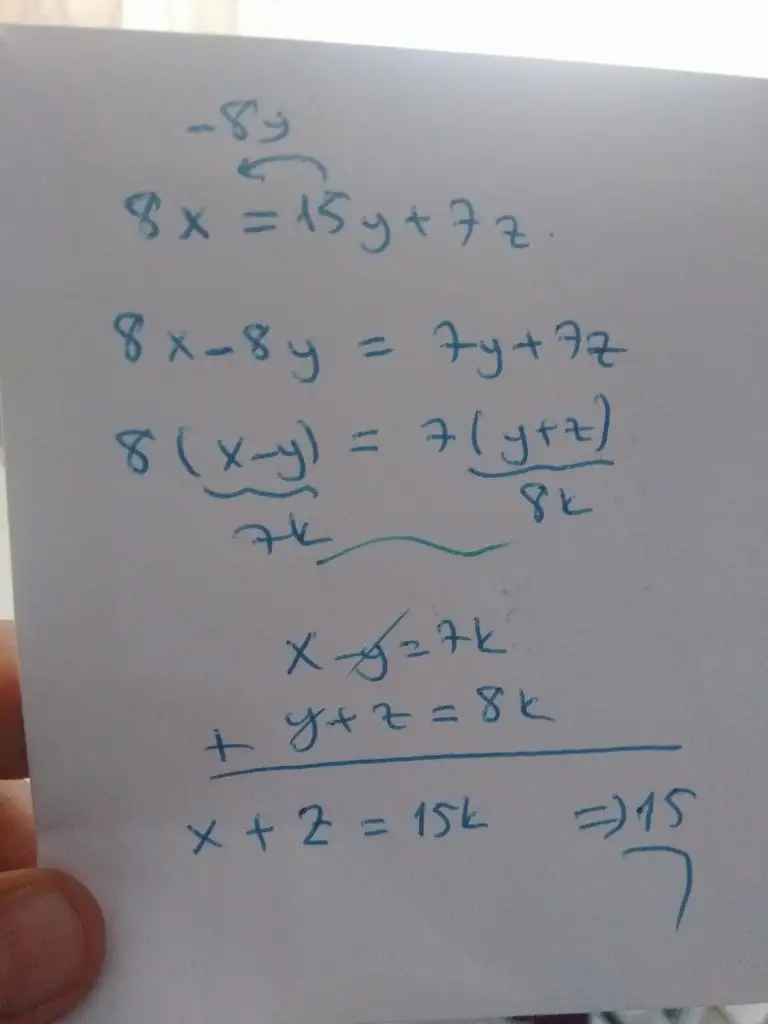 -8y
8x = 15y + 7z.
8x - 8y = 7y + 7z
8(x-y) = 7(y+z)
7k 8k
x - y = 7k
+ y + z = 8k
x + z = 15k => 15